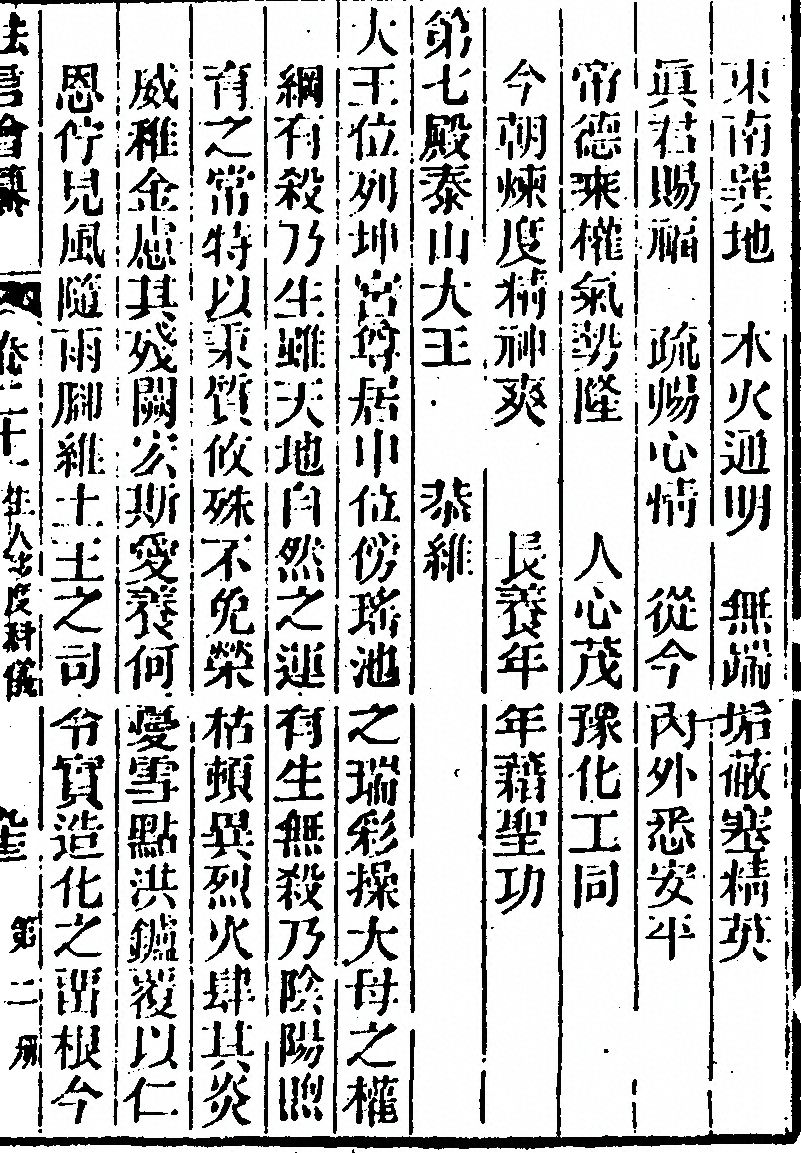 東南巽地　木火通明　無端垢蔽塞精英
眞君賜福　疏暢心情　從今內外悉安平
帝德乘權氣勢隆　人心茂豫化工同
今朝煉度精神爽　長養年年藉聖功
第七殿泰山大王　恭維
大王位列坤宮尊居中位傍瑤池之瑞彩操大母之權
綱有殺乃生雖天地自然之運有生無殺乃陰陽煦
育之常特以秉質攸殊不免榮枯頓異烈火肆其炎
威稚金慮其殘闕宏斯愛養何憂雪點洪鑪覆以仁
恩佇見風隨雨腳維土王之司令實造化之畱根今
法言會纂　卷二十一　生人煉度科儀　第二册